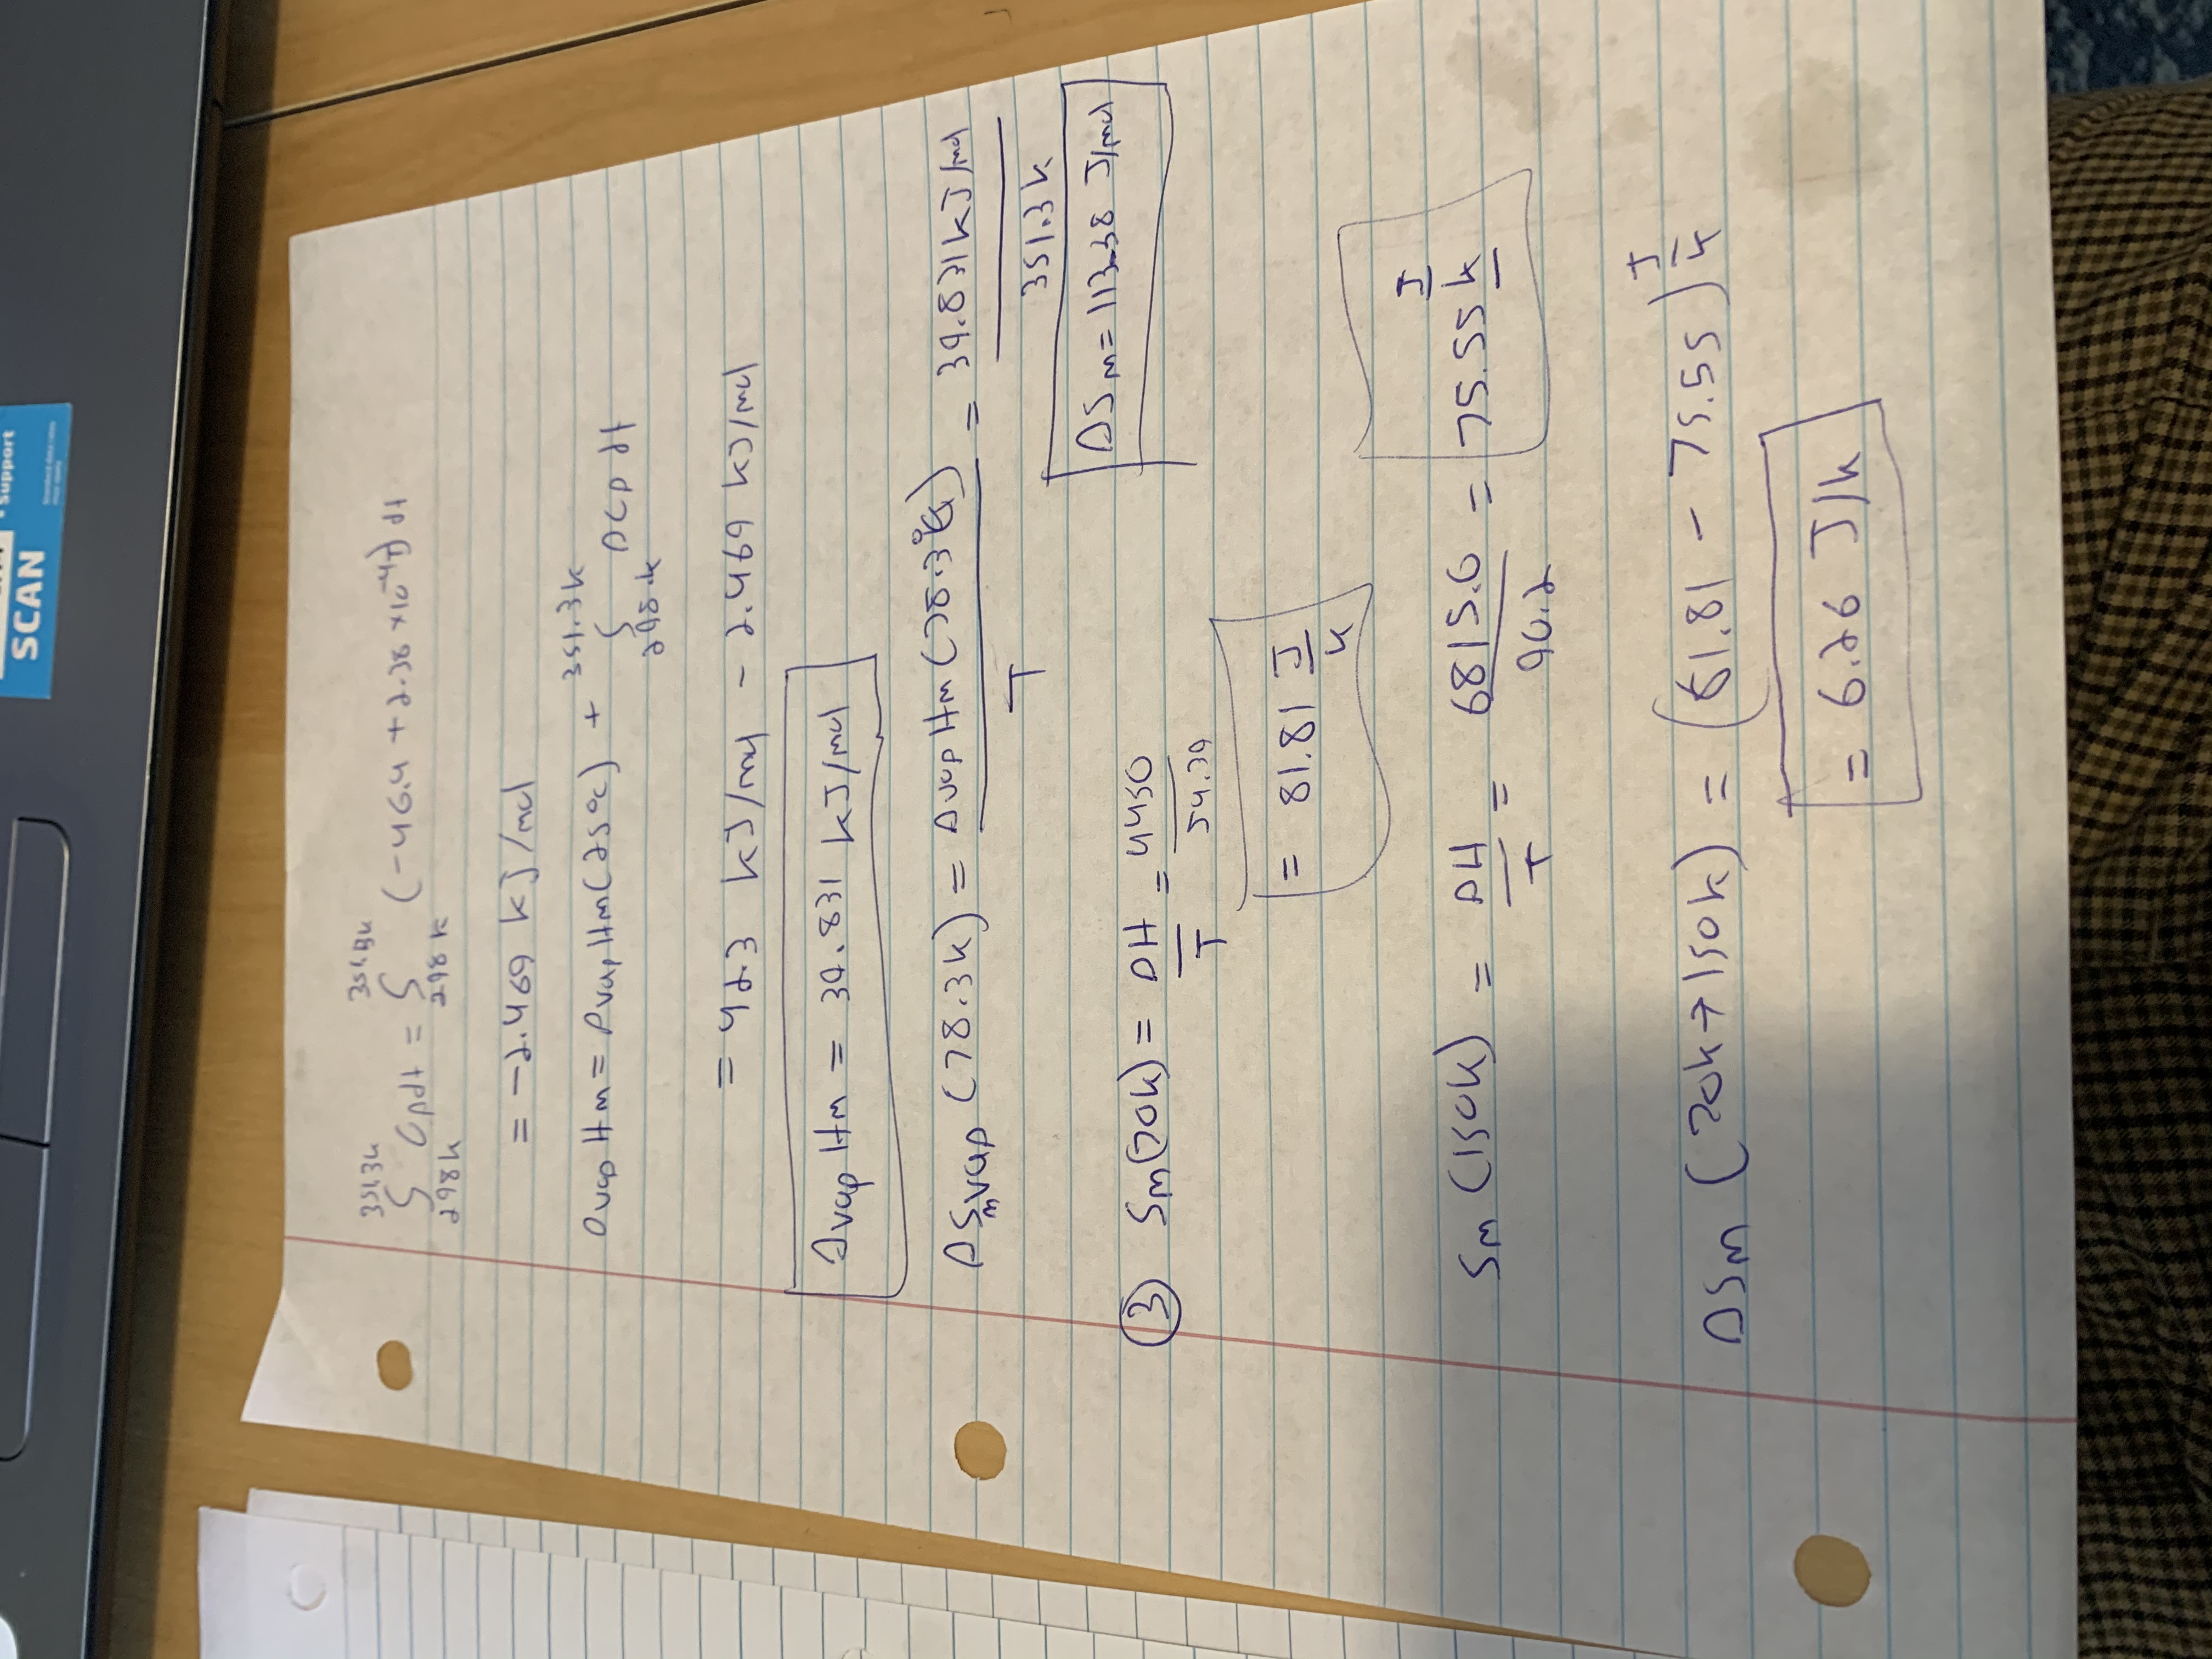 • Support
SCAN
351.3k 351.3k
∫ Cpdt = ∫ (-46.4 + 2.38 ×10⁻⁴T) dt
298k 298 k
= -2.469 kJ/mol
ΔvapHm = ΔvapHm(25°c) + ∫ ΔCp dt
351.3k
298.k
= 42.3 kJ/mol - 2.469 kJ/mol
Δvap Hm = 39.831 kJ/mol
ΔSmvap (78.3k) = ΔvapHm(78.3°C) / T = 39.831kJ/mol / 351.3k
ΔSm = 113.38 J/mol
③ Sm(70k) = ΔH / T = 4450 / 54.39
= 81.81 J/k
Sm (150k) = ΔH / T = 6815.6 / 90.2 = 75.55 J/k
ΔSm (70k→150k) = (81.81 - 75.55) J/k
= 6.26 J/k